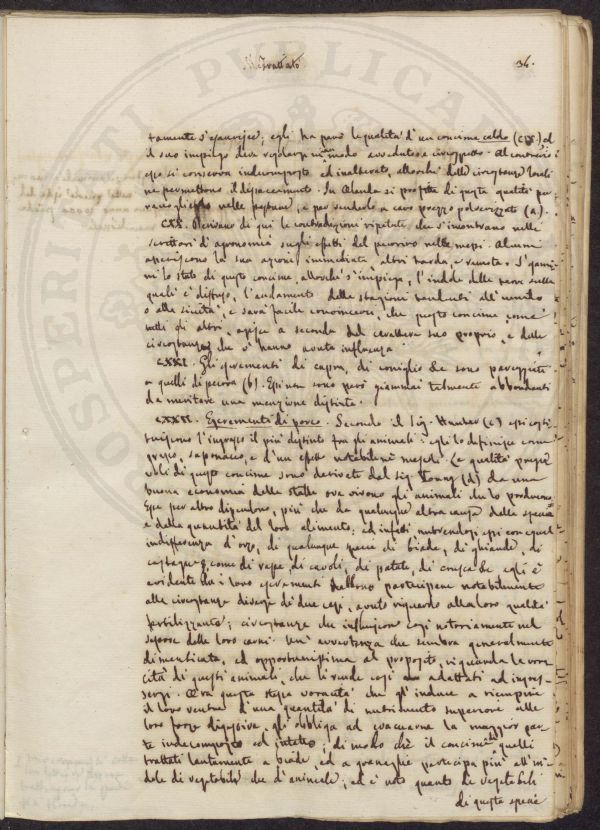 Il Trattato
36.
tamente s'esaurisce; egli ha però le qualità d'un concime caldo (CIX.) ed
il suo impiego deve regolarsi in modo avveduto e circospetto. Al contrario
esso si conserva indecomposto ed inalterato, allorchè delle circostanze locali
ne permettono il dissecamento. In Olanda si profitta di questa qualità per
raccoglierlo nelle, e per venderlo a caro prezzo polverizzato (a).
CXX. Derivano di qui le contradizioni ripetute che s'incontrano nelle
scrittori di agronomia sugli effetti del pecorino nelle messi. Alcuni
asseriscono la sua azione immediata altri tarda, e remota. S'esami
ni lo stato di questo concime, allorchè s'impiega, l'indole delle terre sulle
quali è diffuso, l'andamento delle stagioni tendenti all'umido
o alla siccità, e sarà facile convincersi, che questo concime, come
tutti gli altri, agisce a seconda del carattere suo proprio, e delle
circostanze che v'hanno avuta influenza.
CXXI. Gli escrementi di capra, di coniglio &c sono pareggiati
a quelli di pecora (b). Essi non sono però giammai talmente abbondanti
da meritare una menzione distinta.
CXXII. Escrementi di porco. Secondo il Sig. Hunter (c) essi costi
tuiscono l'ingrasso il più distinto fra gli animali: egli lo definisce come
grasso, saponaceo, e d'un effetto notabilene messi. Le qualità pregie
voli di questo concime sono derivate dal Sig. Young (d) da una
buona economia delle stalle ove vivono gli animali che lo producono.
Esse per altro dipendono, più che da qualunque altra causa dalla specie
e dalla quantità del loro alimento; ed infatti nutrendosi essi con egual
indifferenza d'orzo, di qualunque specie di biade, di ghiande, di
castagne, come di rape, di cavoli, di patate, di crusca &c egli è
evidente che i loro escrementi debbono partecipare notabilmente
alle circostanze diverse di due cose, avuto riguardo alla loro qualità
fertilizzante; circostanze che influiscono così notoriamente nel
sapore delle loro carni. Un'avvertenza che sembra generalmente
dimenticata, ed opportunissima al proposito, riguarda la vora
cità di questi animali, che li rende così adattati ad ingras-
sarsi. Ora questa stessa voracità che gli induce a riempire
il loro ventre d'una quantità di nutrimento superiore alle
loro forze digestive, gli obbliga ad evacuarne la maggior par
te indecomposto ed intatto; di modo chè il concime di quelli
trattati lautamente a biade, ed a granaglie partecipa più all'in
dole di vegetabile che d'animale; ed è noto quanto i vegetabili
di questa specie